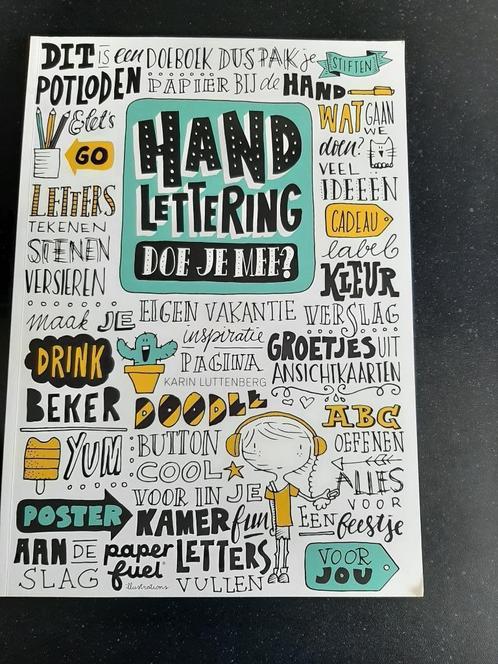 DIT is een DOEBOEK DUS PAK je STIFTEN
POTLODEN PAPIER BIJ de HAND
& let's
GO
HAND
LETTERING
DOE JE MEE?
WAT GAAN
WE
doen?
VEEL
IDEEËN
CADEAU
label
KLEUR
LETTERS
TEKENEN
STENEN
VERSIEREN
maak JE EIGEN VAKANTIE VERSLAG
inspiratie
PAGINA
KARIN LUTTENBERG
GROETJES UIT
ANSICHTKAARTEN
DRINK
BEKER
DOODLE
ABC
OEFENEN
YUM
BUTTON
COOL
ALLES
VOOR
EEN
feestje
VOOR IN JE
POSTER KAMER fun
AAN DE paper fuel LETTERS
SLAG illustrations VULLEN
VOOR
JOU